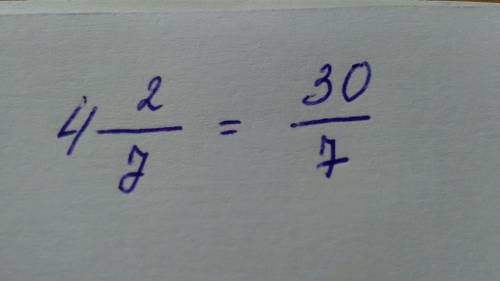 4 2/7 = 30/7